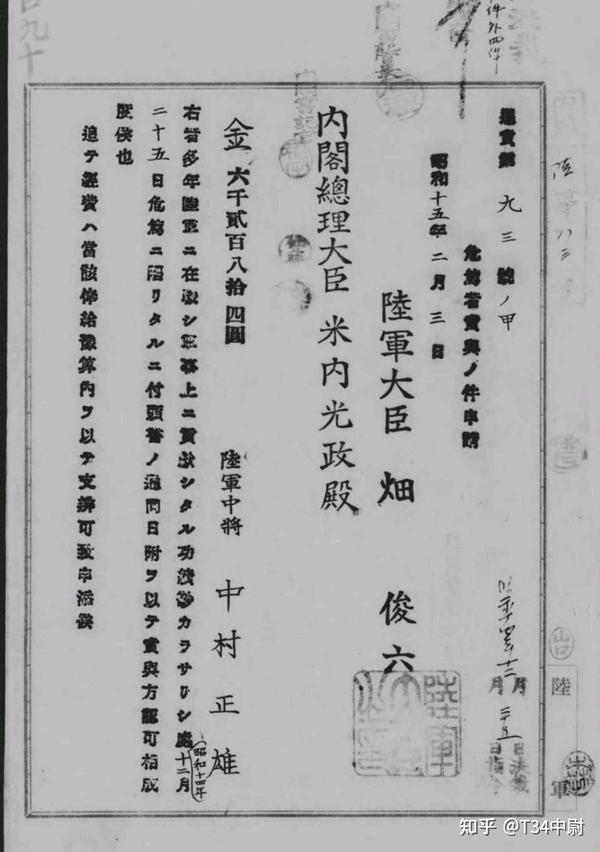 件外四件
陸
九三號ノ甲
危篤者賞與ノ件申請
昭和十五年二月三日
陸軍大臣 畑 俊六
內閣總理大臣 米內光政殿
金 六千貳百八拾四圓
陸軍中將 中村正雄
右者多年陸軍ニ在職シ軍務上ニ貢獻シタル功績尠カラサリシ處(昭和十四年)十二月
二十五日危篤ニ陷リタルニ付頭書ノ通同日附ヲ以テ賞與方認可相成
度候也
追テ經費ハ當該俸給豫算內ヲ以テ支辨可致申添候
陸軍
山口
知乎 @T34中尉